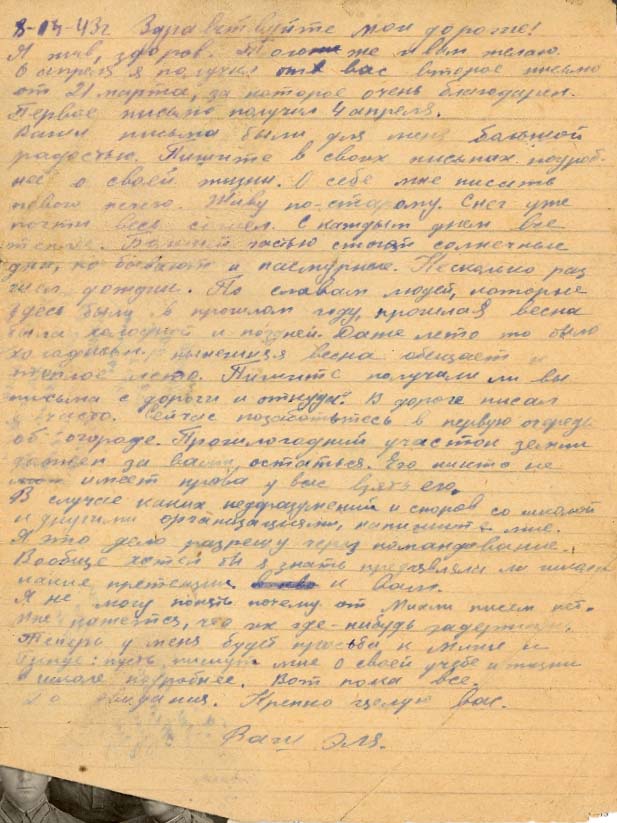 8-IV-43г Здравствуйте мои дорогие!
Я жив, здоров. Того же и вам желаю.
6 апреля я получил от вас второе письмо
от 21 марта, за которое очень благодарен.
Первое письмо получил 4 апреля.
Ваши письма были для меня большой
радостью. Пишите в своих письмах подроб-
нее о своей жизни. О себе мне писать
нового нечего. Живу по-старому. Снег уже
почти весь сошел. С каждым днем все
теплее. Большей частью стоят солнечные
дни, но бывают и пасмурные. Несколько раз
шел дождик. По словам людей, которые
здесь были в прошлом году, прошлая весна
была холодной и поздней. Даже лето то было
холодным. Нынешняя весна обещает и
теплое лето. Пишите получали ли вы
письма с дороги и откуда. В дороге писал
я часто. Сейчас позаботьтесь в первую очередь
об огороде. Прошлогодний участок земли
должен за вами остаться. Его никто не
имеет права у вас взять его.
В случае каких недоразумений и споров со школой
и другими организациями, напишите мне.
Я это дело разрешу через командование.
Вообще хотел бы я знать предъявляли ли
какие претензии к вам.
Я не могу понять почему от писем нет.
Мне кажется, что их где-нибудь задержали.
Теперь у меня будет просьба к и
: пусть пишут мне о своей учебе и жизни
в школе подробнее. Вот пока все.
До свидания. Крепко целую вас.
Ваш Эля.